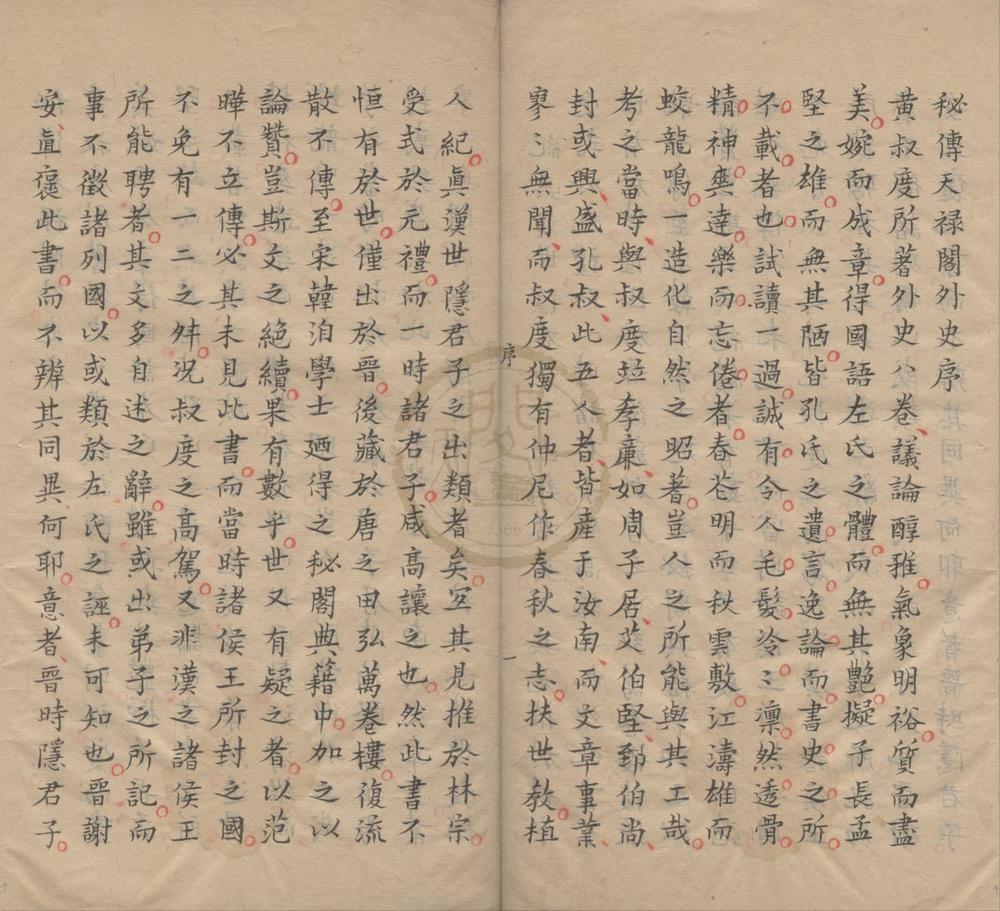 秘傳天禄閣外史序
黃叔度所著外史八卷議論醇雅氣象明裕質而盡
美婉而成章得國語左氏之體而無其艷擬子長孟
堅之雄而無其陋皆孔氏之遺言逸論而書史之所
不載者也試讀一過誠有令人毛髮冷〻凛然透骨
精神爽達樂而忘倦者春芲明而秋雲敷江濤雄而
蛟龍鳴一造化自然之昭著豈人之所能與其工哉
考之當時與叔度竝孝廉如周子居艾伯堅郅伯尚
封或興盛孔叔此五人者皆産于汝南而文章事業
寥〻無聞而叔度獨有仲尼作春秋之志扶世教植
序
一
人紀真漢世隱君子之出類者矣宐其見推於林宗
受式於元禮而一時諸君子咸高讓之也然此書不
恒有於世僅出於晉後藏於唐之田弘萬卷樓復流
散不傳至宋韓洎學士廼得之秘閣典籍中加之以
論贊豈斯文之絕續果有數乎世又有疑之者以范
曄不立傳必其未見此書而當時諸侯王所封之國
不免有一二之舛况叔度之高駕又非漢之諸侯王
所能聘者其文多自述之辭雖或出弟子之所記而
事不徵諸列國以或類於左氏之誣未可知也晋謝
安眞褒此書而不辨其同異何耶意者晉時隱君子